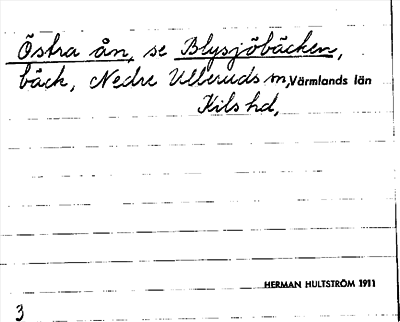 Östra ån, se Blysjöbäcken,
bäck, Nedre Ulleruds sn, Värmlands län
Kils hd,
HERMAN HULTSTRÖM 1911
3